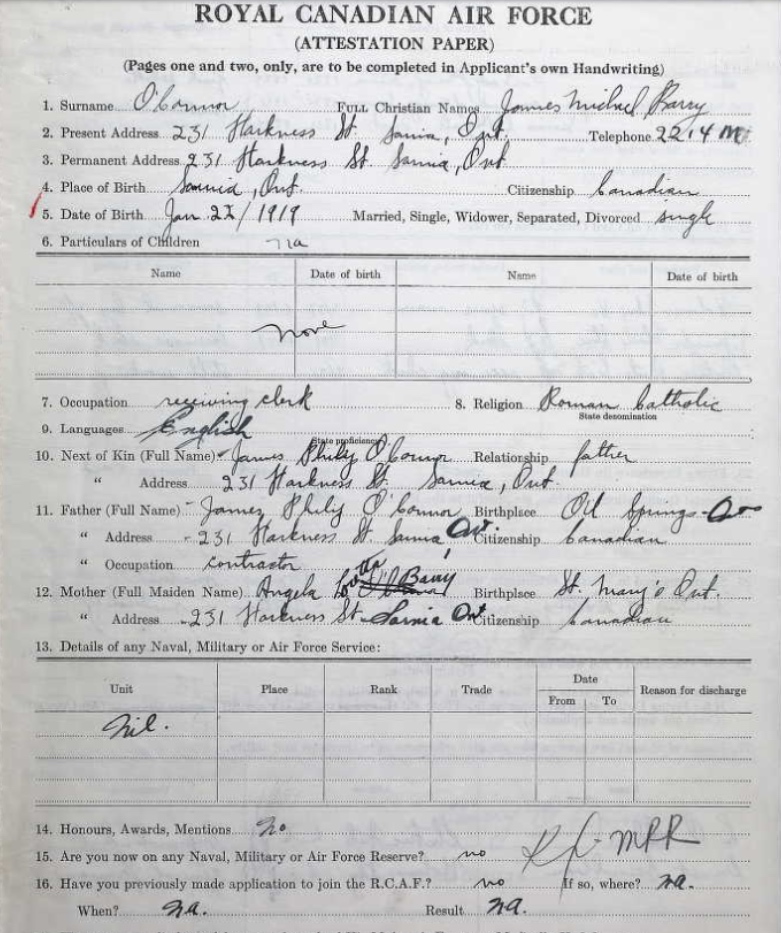 ROYAL CANADIAN AIR FORCE
(ATTESTATION PAPER)
(Pages one and two, only, are to be completed in Applicant's own Handwriting)
1. Surname O'Connor FULL Christian Names James Michael Barry
2. Present Address 231 Harkness St. Sarnia, Ont. Telephone 2214 M
3. Permanent Address 231 Harkness St. Sarnia, Ont
4. Place of Birth Sarnia, Ont. Citizenship Canadian
5. Date of Birth Jan. /1919 Married, Single, Widower, Separated, Divorced single
6. Particulars of Children na
Name Date of birth Name Date of birth
none
7. Occupation receiving clerk 8. Religion Roman Catholic
State denomination
9. Languages English
State proficiency
10. Next of Kin (Full Name) James Philip O'Connor Relationship father
" Address 231 Harkness St. Sarnia, Ont.
11. Father (Full Name) James Philip O'Connor Birthplace Oil Springs - Ont
" Address 231 Harkness St. Sarnia Ont. Citizenship Canadian
" Occupation contractor
12. Mother (Full Maiden Name) Angela Barry Birthplace St. Mary's Ont.
" Address 231 Harkness St Sarnia Ont Citizenship Canadian
13. Details of any Naval, Military or Air Force Service:
Unit Place Rank Trade Date Reason for discharge
From To
Nil.
14. Honours, Awards, Mentions No
15. Are you now on any Naval, Military or Air Force Reserve? no MRR
16. Have you previously made application to join the R.C.A.F.? no If so, where? na.
When? na. Result na.